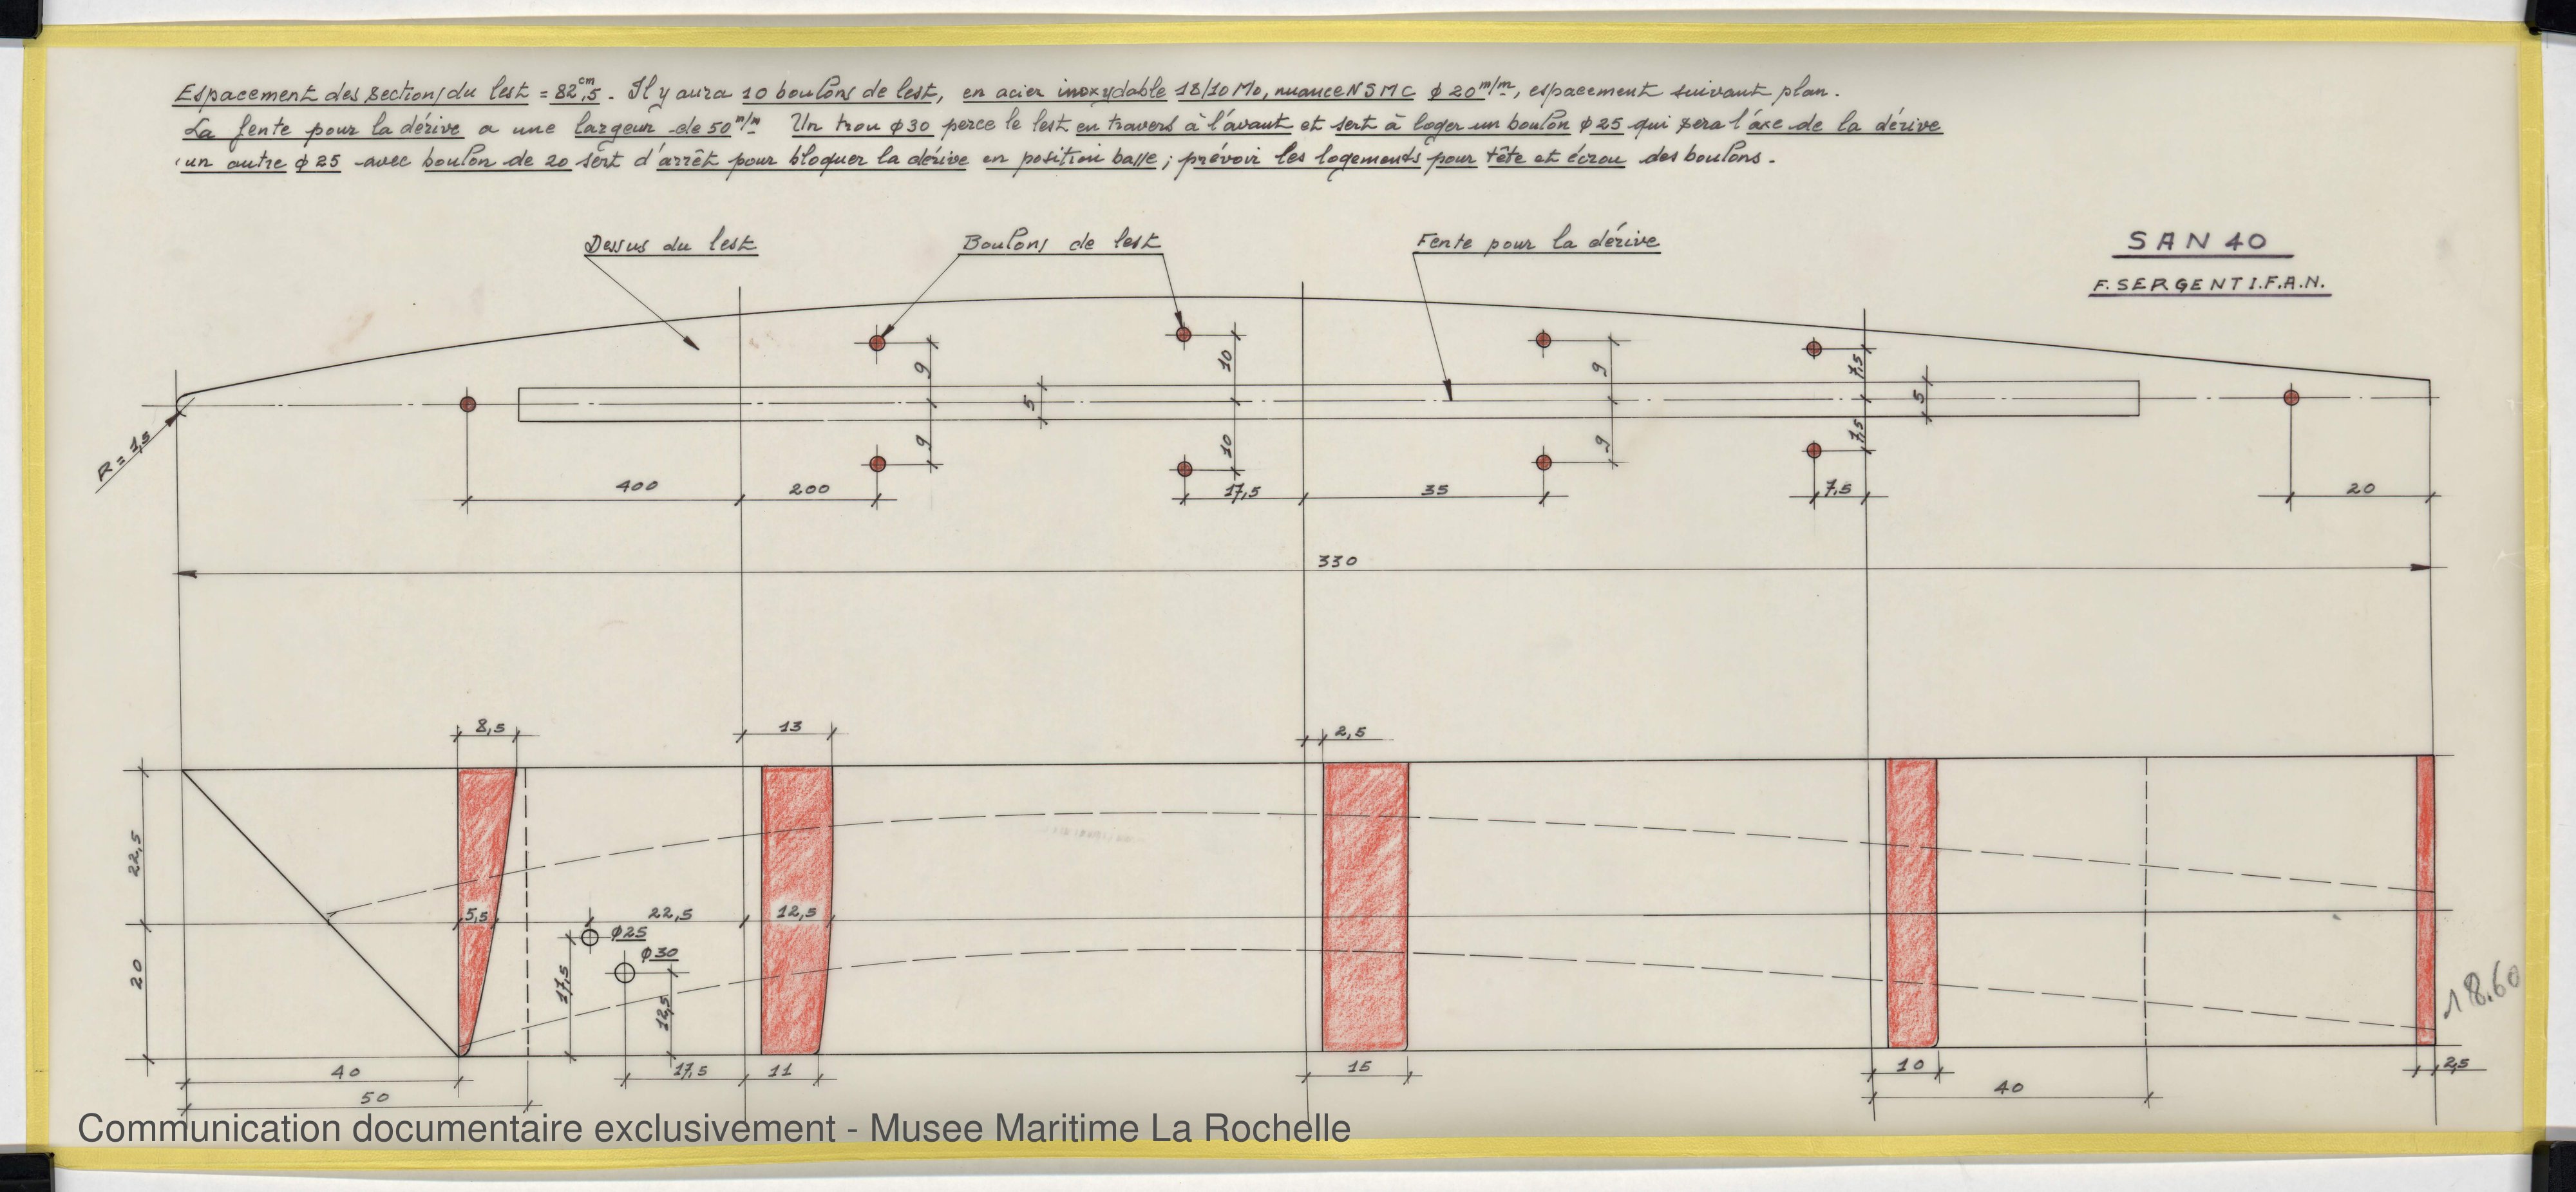 Espacement des sections du lest = 82,5 cm. Il y aura 10 boulons de lest, en acier inoxydable 18/10 Mo, nuance NSMC ϕ 20 m/m, espacement suivant plan.
La fente pour la dérive a une largeur de 50 m/m Un trou ϕ30 perce le lest en travers à l'avant et sert à loger un boulon ϕ25 qui sera l'axe de la dérive
un autre ϕ25 avec boulon de 20 sert d'arrêt pour bloquer la dérive en position basse; prévoir les logements pour tête et écrou des boulons.
Dessus du lest
Boulons de lest
Fente pour la dérive
SAN 40
F. SERGENT I.F.A.N.
9
10
9
7,5
5
5
R = 1,5
9
10
9
7,5
400
200
17,5
35
7,5
20
330
8,5
13
2,5
22,5
5,5
22,5
12,5
ϕ25
ϕ30
20
17,5
12,5
18.60
40
17,5
11
15
10
2,5
50
40
Communication documentaire exclusivement - Musee Maritime La Rochelle